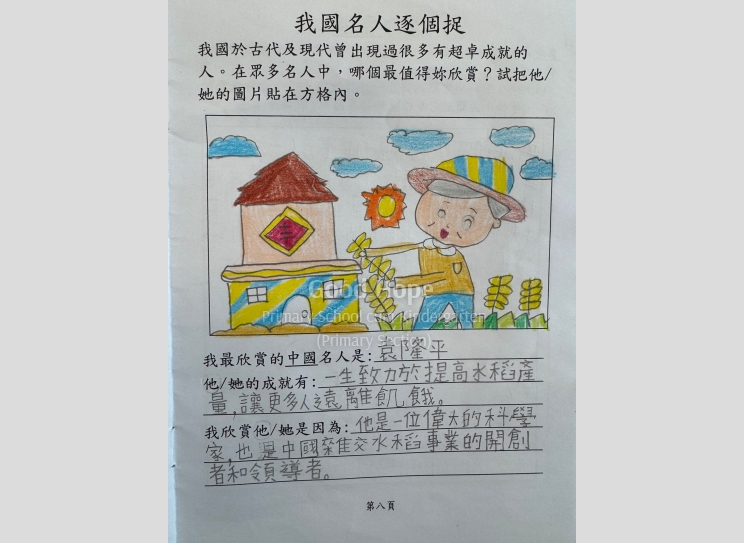 我國名人逐個捉
我國於古代及現代曾出現過很多有超卓成就的
人。在眾多名人中，哪個最值得妳欣賞？試把他/
她的圖片貼在方格內。
Good Hope
Primary School cum Kindergarten
(Primary Section)
我最欣賞的中國名人是：袁隆平
他/她的成就有：一生致力於提高水稻產
量，讓更多人遠離飢餓。
我欣賞他/她是因為：他是一位偉大的科學
家，也是中國雜交水稻事業的開創
者和領導者。
第八頁